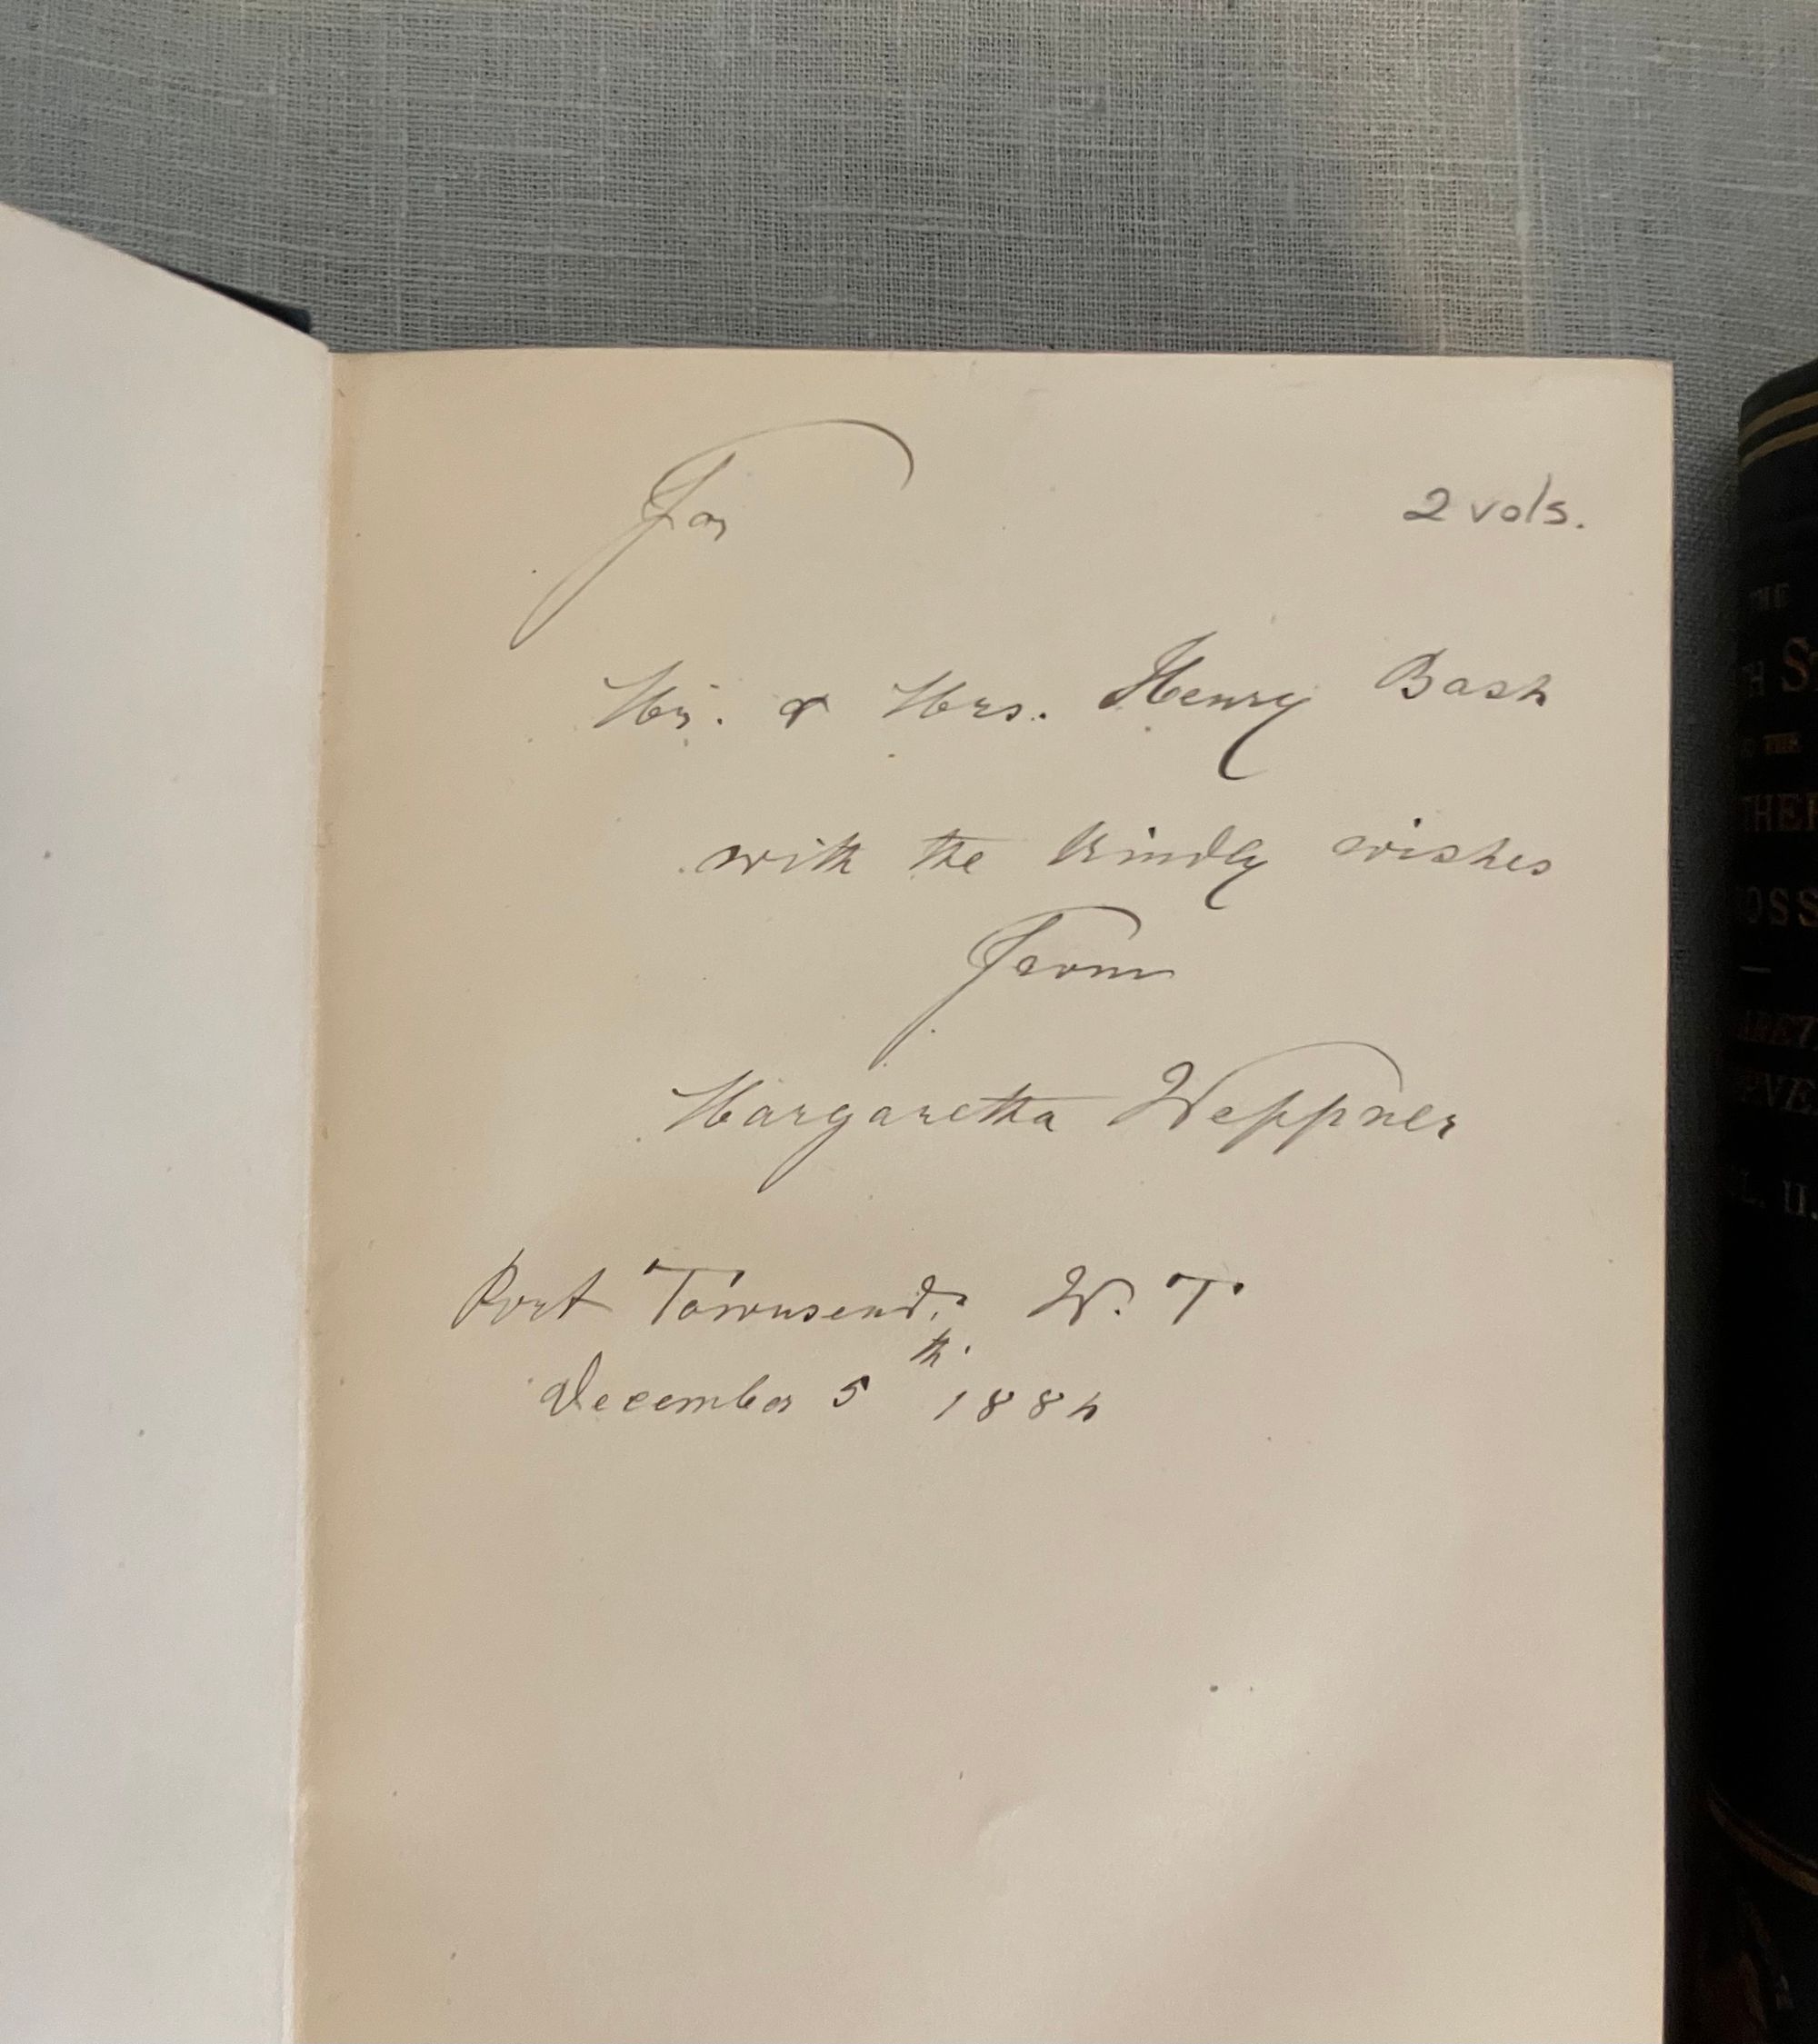 For
2 vols.
Mr. & Mrs. Henry Bash
with the kindly wishes
From
Margaretha Weppner
Port Townsend, W. T
December 5th. 1884
THE
H S
THE
THER
OSS
ARET
L. II.